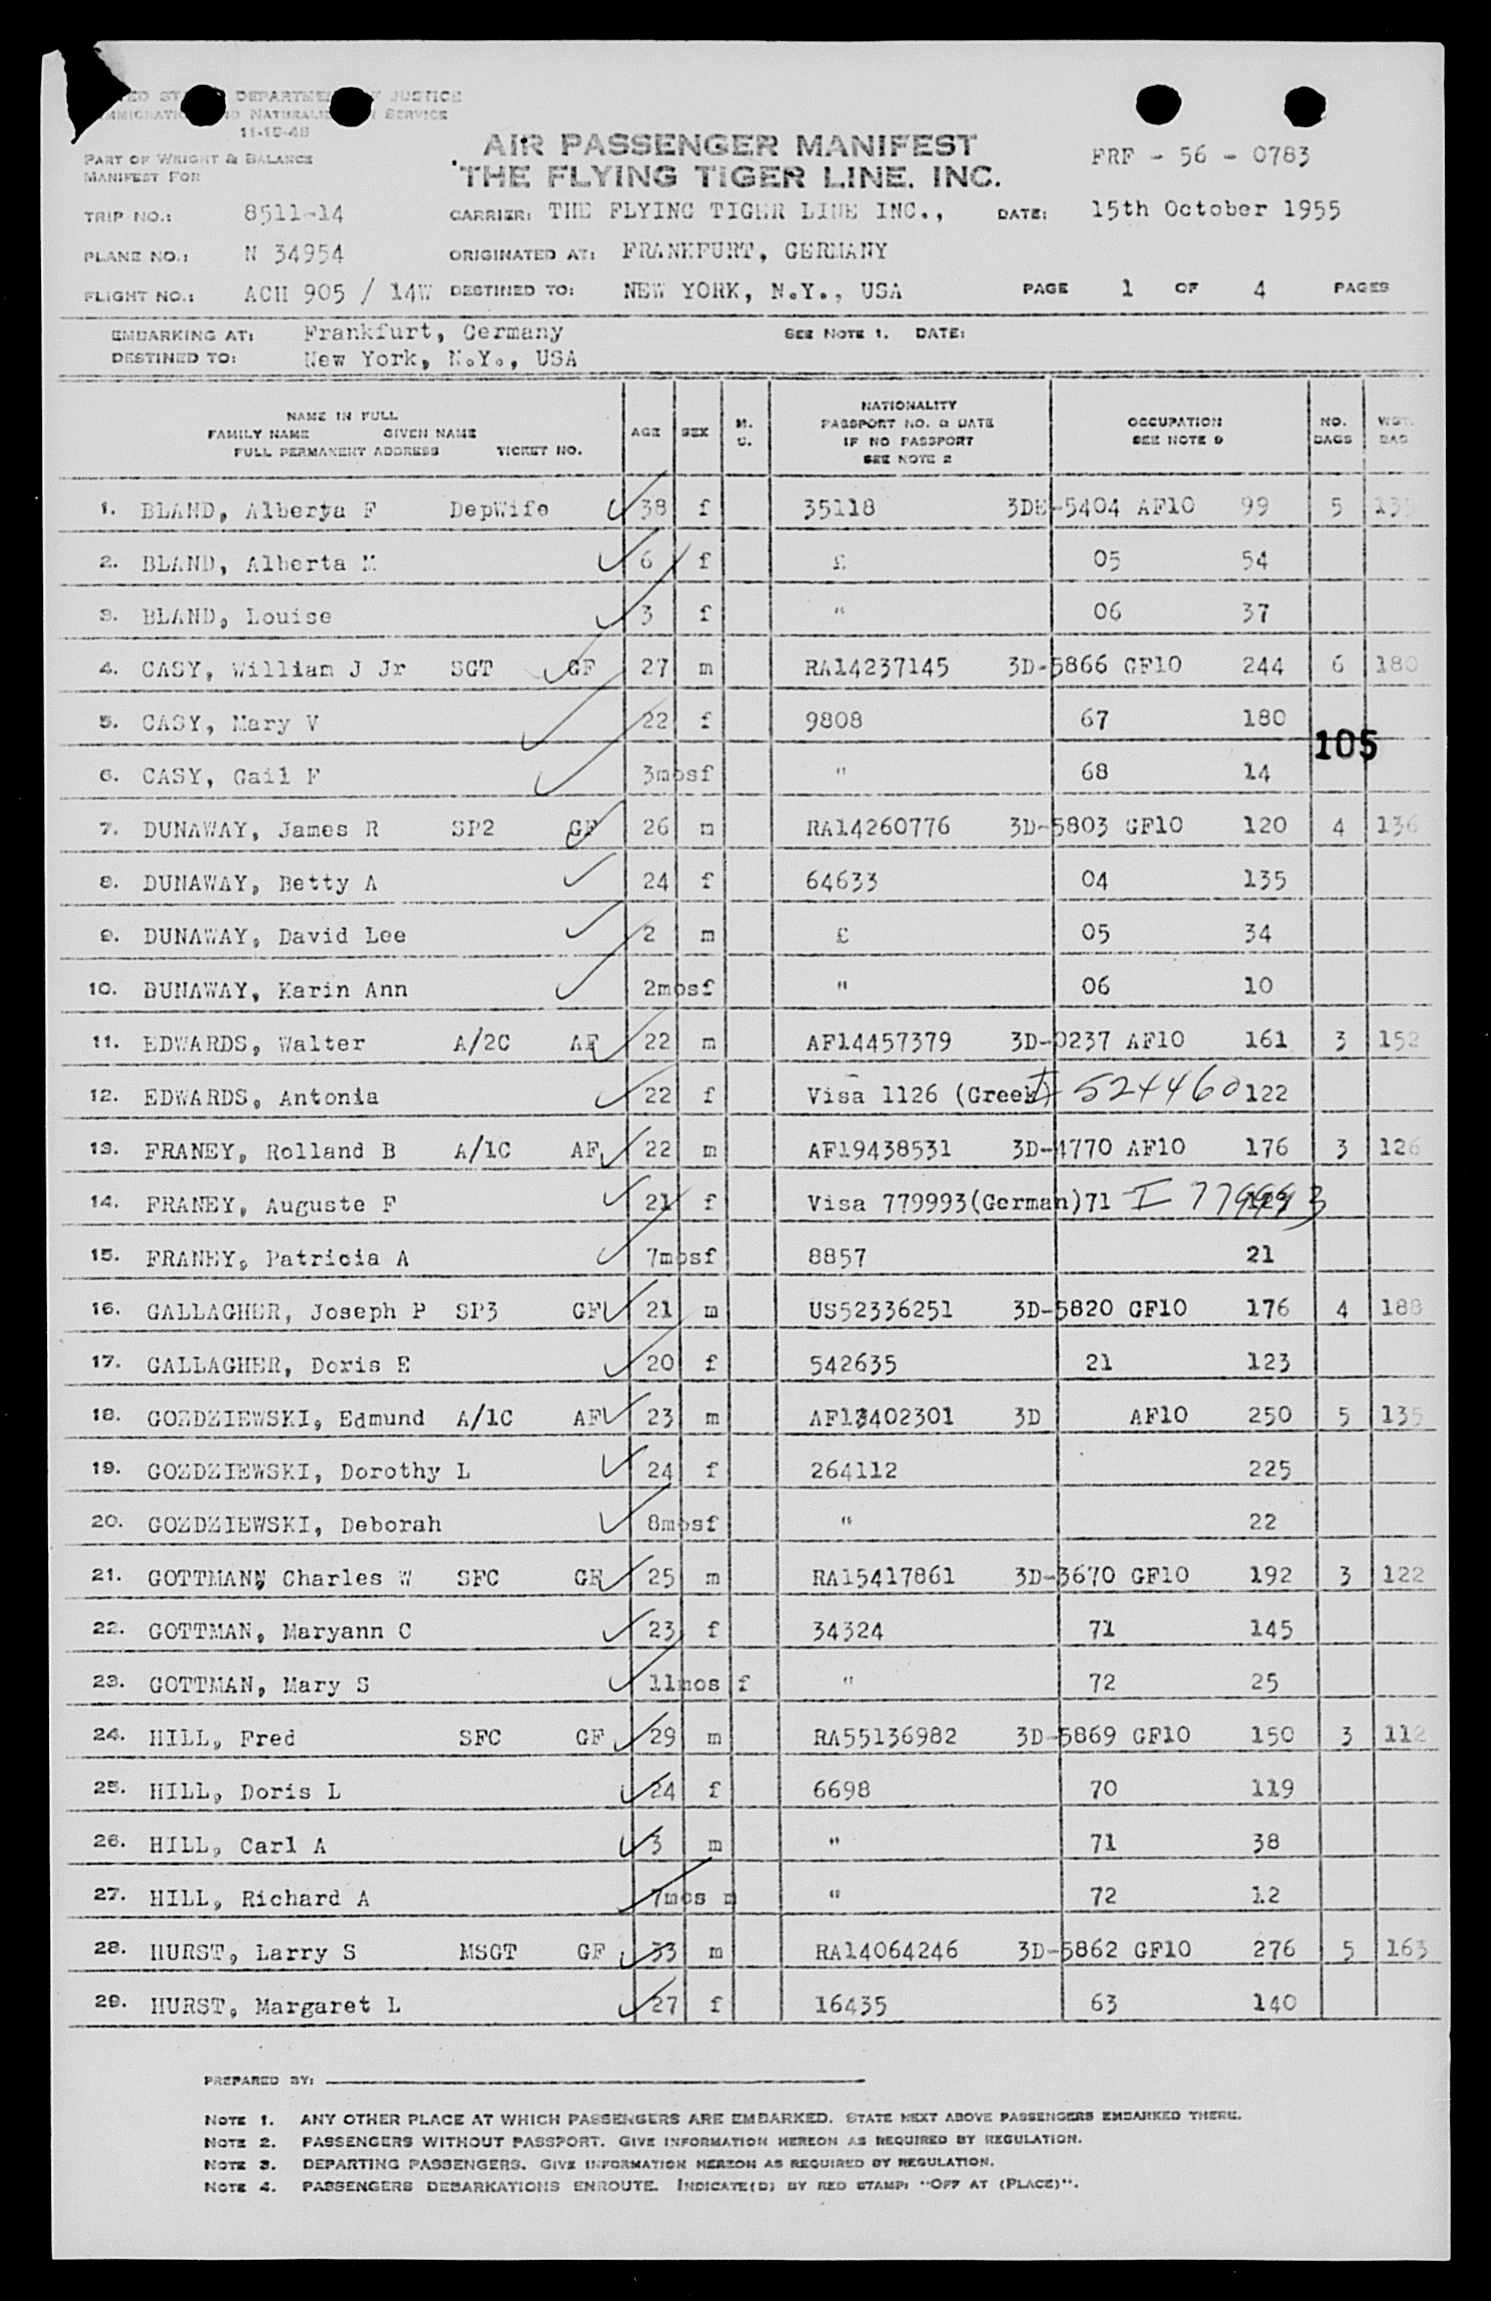 UNITED STATES DEPARTMENT OF JUSTICE
IMMIGRATION AND NATURALIZATION SERVICE
11-15-48
PART OF WEIGHT & BALANCE
MANIFEST FOR
AIR PASSENGER MANIFEST
THE FLYING TIGER LINE, INC.
FRF - 56 - 0783
TRIP NO.: 8511-14 CARRIER: THE FLYING TIGER LINE INC., DATE: 15th October 1955
PLANE NO.: N 34954 ORIGINATED AT: FRANKFURT, GERMANY
FLIGHT NO.: ACH 905 / 14W DESTINED TO: NEW YORK, N.Y., USA PAGE 1 OF 4 PAGES
EMBARKING AT: Frankfurt, Germany SEE NOTE 1. DATE:
DESTINED TO: New York, N.Y., USA
NAME IN FULL
FAMILY NAME GIVEN NAME
FULL PERMANENT ADDRESS TICKET NO.
AGE SEX M. S.
NATIONALITY
PASSPORT NO. & DATE
IF NO PASSPORT
SEE NOTE 2
OCCUPATION
SEE NOTE 9
NO. BAGS WGT. BAG
1. BLAND, Alberta F DepWife 38 f 35118 3DE-5404 AF10 99 5 135
2. BLAND, Alberta M 6 f £ 05 54
3. BLAND, Louise 3 f " 06 37
4. CASY, William J Jr SGT GF 27 m RA14237145 3D-5866 GF10 244 6 180
5. CASY, Mary V 22 f 9808 67 180
105
6. CASY, Gail F 3mosf " 68 14
7. DUNAWAY, James R SP2 GF 26 m RA14260776 3D-5803 GF10 120 4 136
8. DUNAWAY, Betty A 24 f 64633 04 135
9. DUNAWAY, David Lee 2 m £ 05 34
10. DUNAWAY, Karin Ann 2mosf " 06 10
11. EDWARDS, Walter A/2C AF 22 m AF14457379 3D-0237 AF10 161 3 152
12. EDWARDS, Antonia 22 f Visa 1126 (Greek) I 524460 122
13. FRANEY, Rolland B A/1C AF 22 m AF19438531 3D-4770 AF10 176 3 126
14. FRANEY, Auguste F 21 f Visa 779993(German)71 I 779993
15. FRANEY, Patricia A 7mosf 8857 21
16. GALLAGHER, Joseph P SP3 GF 21 m US52336251 3D-5820 GF10 176 4 188
17. GALLAGHER, Doris E 20 f 542635 21 123
18. GOZDZIEWSKI, Edmund A/1C AF 23 m AF13402301 3D AF10 250 5 135
19. GOZDZIEWSKI, Dorothy L 24 f 264112 225
20. GOZDZIEWSKI, Deborah 8mosf " 22
21. GOTTMAN, Charles W SFC GF 25 m RA15417861 3D-3670 GF10 192 3 122
22. GOTTMAN, Maryann C 23 f 34324 71 145
23. GOTTMAN, Mary S 11mos f " 72 25
24. HILL, Fred SFC GF 29 m RA55136982 3D-5869 GF10 150 3 112
25. HILL, Doris L 24 f 6698 70 119
26. HILL, Carl A 3 m " 71 38
27. HILL, Richard A 7mos m " 72 12
28. HURST, Larry S MSGT GF 33 m RA14064246 3D-5862 GF10 276 5 163
29. HURST, Margaret L 27 f 16435 63 140
PREPARED BY:
NOTE 1. ANY OTHER PLACE AT WHICH PASSENGERS ARE EMBARKED. STATE NEXT ABOVE PASSENGERS EMBARKED THERE.
NOTE 2. PASSENGERS WITHOUT PASSPORT. GIVE INFORMATION HEREON AS REQUIRED BY REGULATION.
NOTE 3. DEPARTING PASSENGERS. GIVE INFORMATION HEREON AS REQUIRED BY REGULATION.
NOTE 4. PASSENGERS DEBARKATIONS ENROUTE. INDICATE(D) BY RED STAMP: "OFF AT (PLACE)".